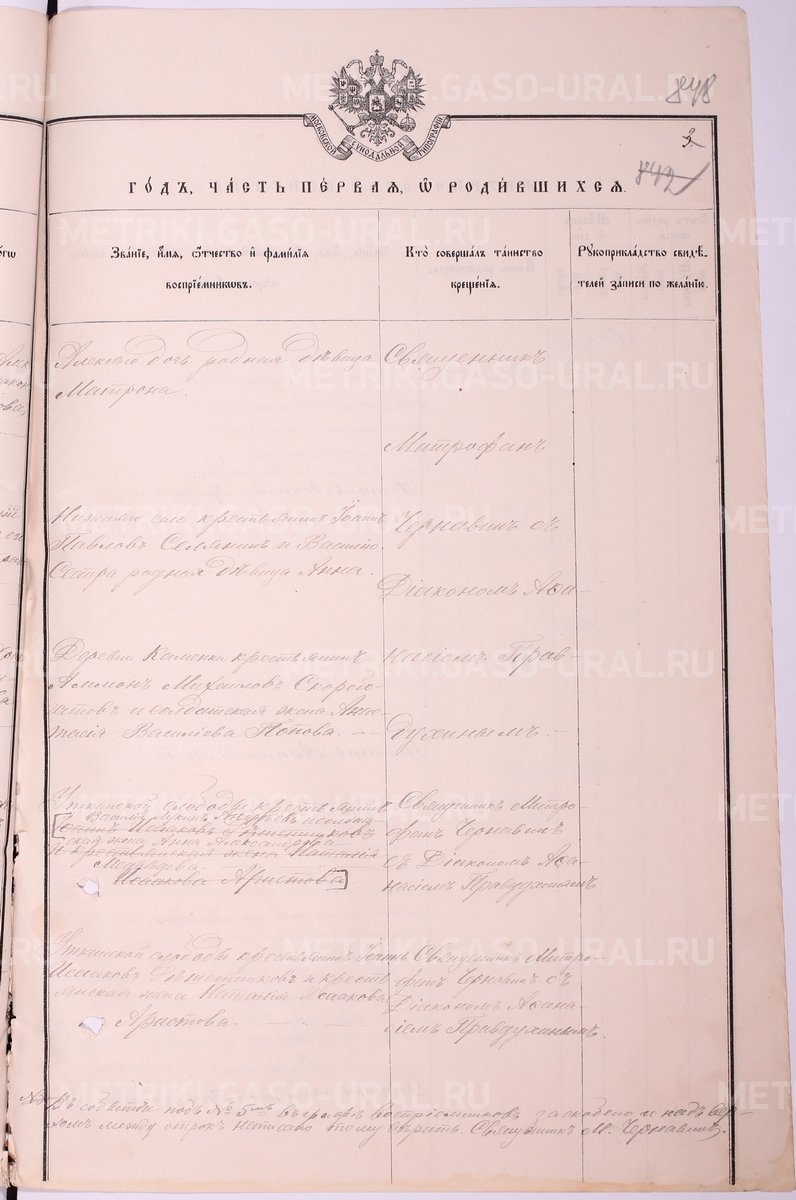 848
МОСКОВСКОЙ СѴНОДАЛЬНОЙ ТИПОГРАФІИ
3.
842
ГО́ДЪ, ЧА́СТЬ ПЕ́РВАЯ, Ѿ РОДИ́ВШИХСЯ.
Зва́нїе, и҆́мя, ѻ҆́тчество и҆ фами́лїя
воспрїе́мникѡвъ.
Кто̀ соверша́лъ та́инство
креще́нїя.
Рꙋкоприкла́дство свидѣ́-
телей за́писи по жела́нїю.
дочь родная дѣвица
Матрона.
Священникъ
Митрофанъ
Нижняго села крестьянинъ Іоаннъ
Павловъ Селянинъ и Василію
Сестра родная дѣвица Анна.
Чернавинъ съ
Діакономъ Аѳа-
Деревни Каменки крестьянинъ
Михаиловъ Скоробо-
гатовъ и солдатская жена Анас-
тасія Василіева Попова.
насіемъ Прав-
духинымъ.
Уткинской слободы крестьянинъ
Іоаннъ Исааковъ
и крестьянская жена Наталія
Исаакова Аристова
Священникъ Митро-
фанъ Чернавинъ
съ Діакономъ Аѳа-
насіемъ Правдухинымъ
Уткинской слободы крестьянинъ Іоаннъ
Исааковъ и кресть-
янская жена Наталія Исаакова
Аристова.
Священникъ Митро-
фанъ Чернавинъ съ
Діакономъ Аѳана-
сіемъ Правдухинымъ.
Въ событіи подъ № 5мъ въ графѣ воспріемниковъ заскоблено и надъ вер-
хомъ между строкъ написано тому вѣрить. Священникъ М. Чернавинъ.
METRIKI.GASO-URAL.RU